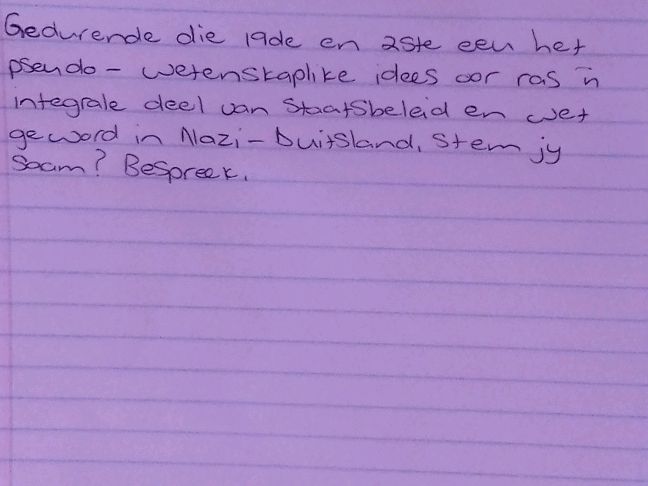 Gedurende die 19de en 20ste eeu het
pseudo - wetenskaplike idees oor ras 'n
integrale deel van Staatsbeleid en wet
geword in Nazi - Duitsland, stem jy
Saam? Bespreek.